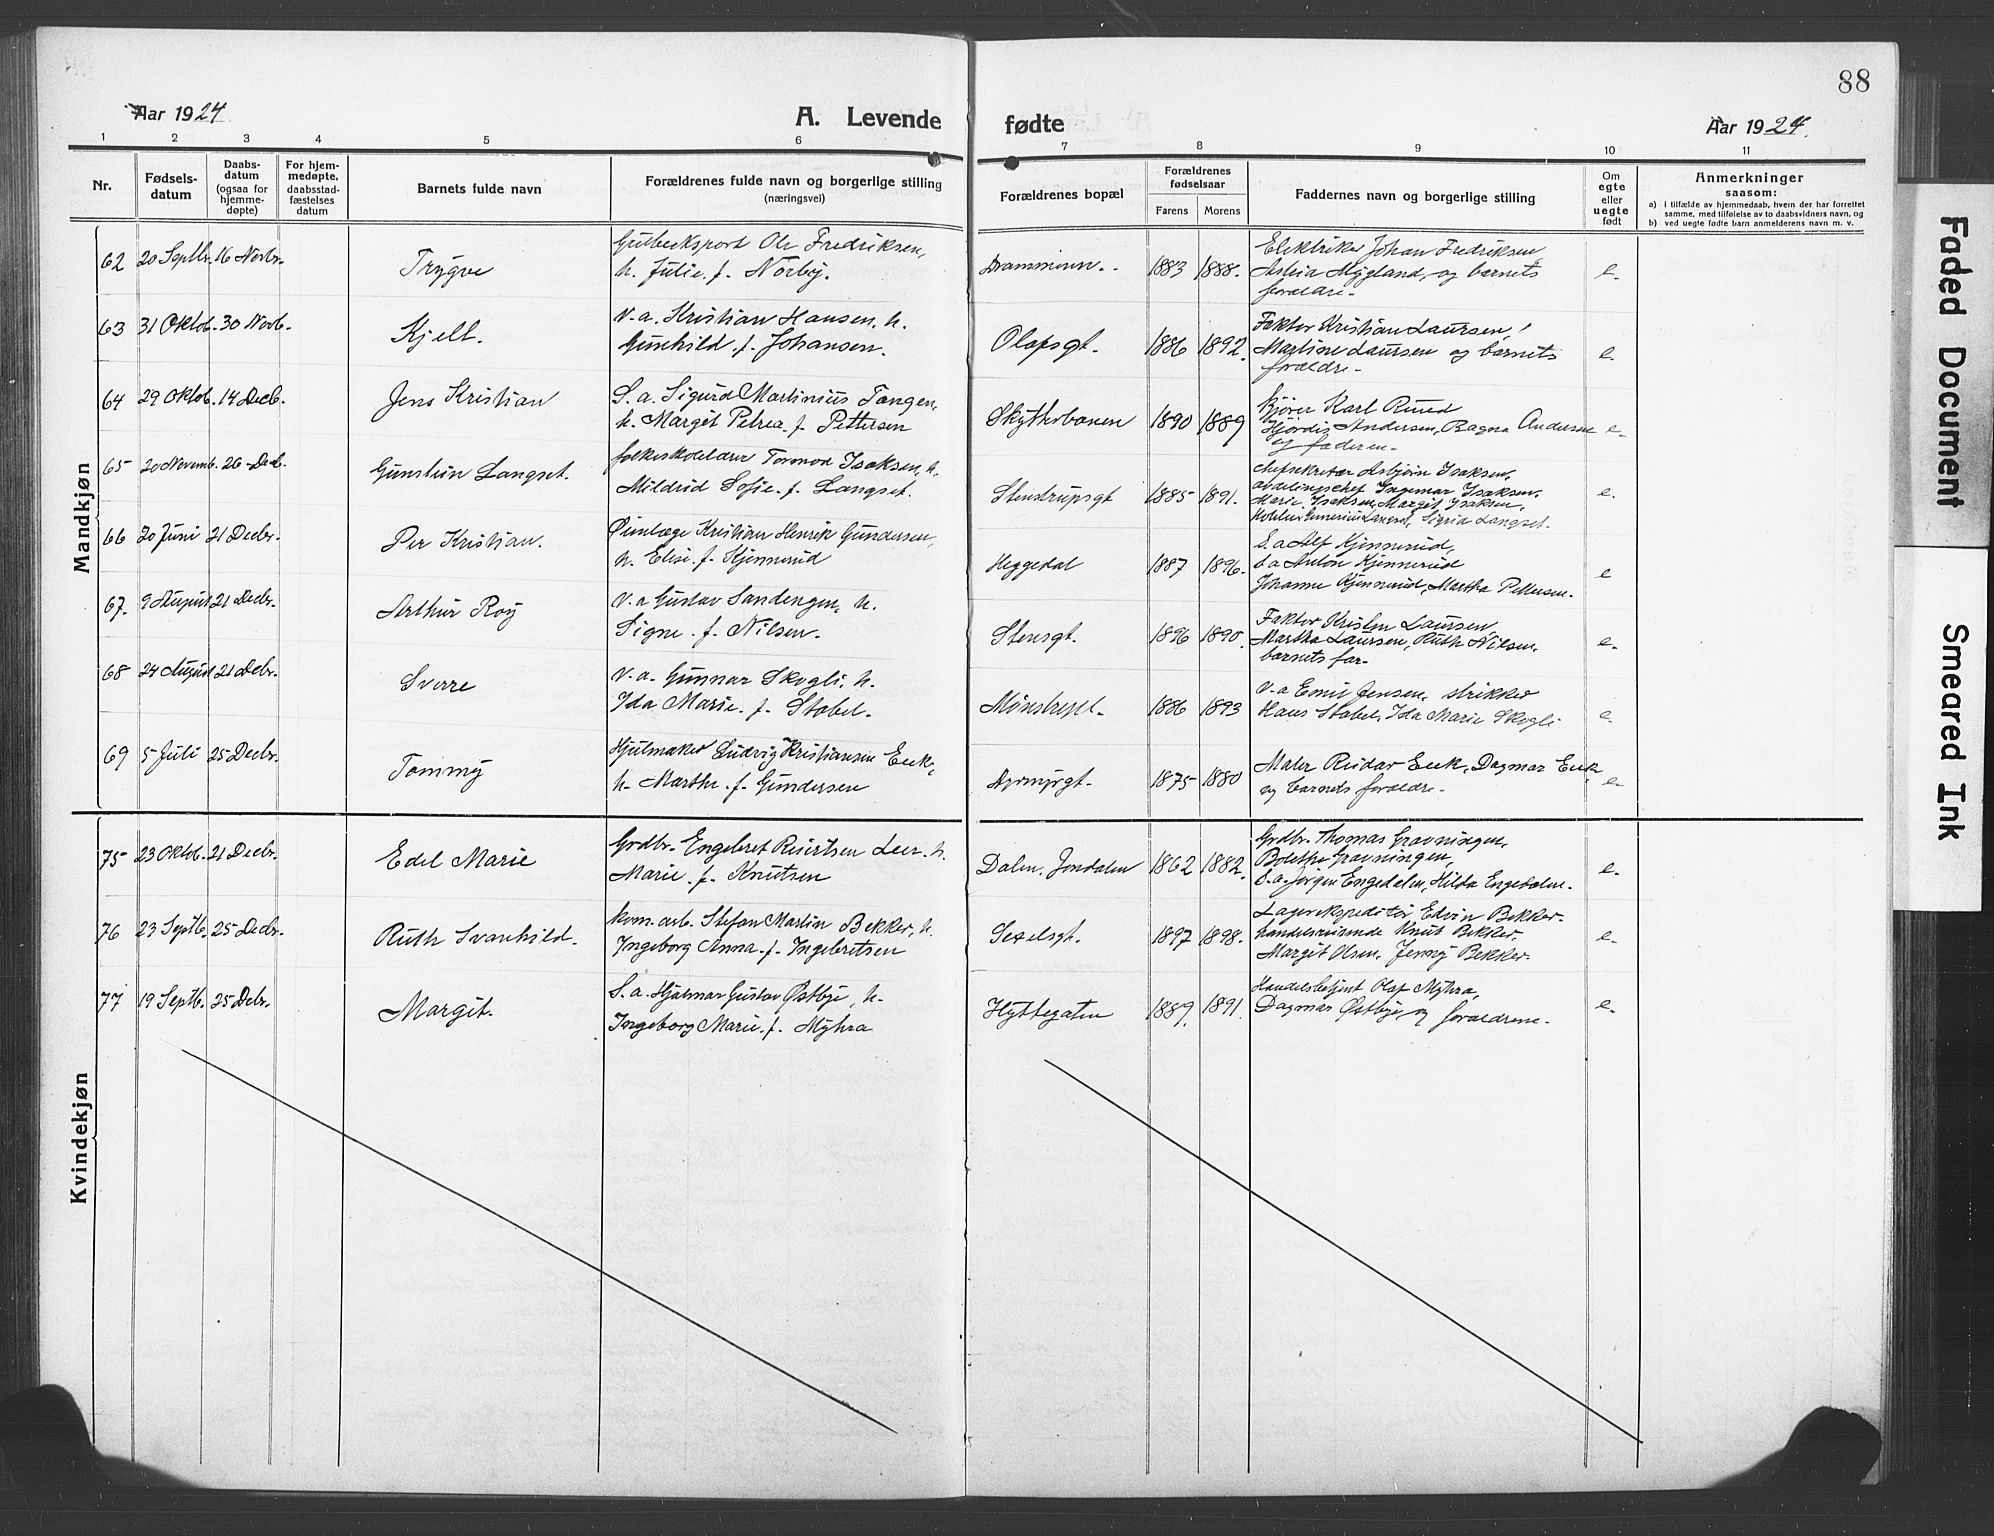 88
Aar 1924
A. Levende
fødte
Aar 1924.
1 2 3 4 5 6 7 8 9 10 11
Nr.
Fødsels-
datum
Daabs-
datum
(ogsaa for
hjemme-
døpte)
For hjem-
medøpte,
daabsstad-
fæstelses
datum
Barnets fulde navn
Forældrenes fulde navn og borgerlige stilling
(næringsvei)
Forældrenes bopæl
Forældrenes
fødselsaar
Farens Morens
Faddernes navn og borgerlige stilling
Om
egte
eller
uegte
født
Anmerkninger
saasom:
a) i tilfælde av hjemmedaab, hvem der har forrettet
samme, med tilføielse av to daabsvidners navn, og
b) ved uegte fødte barn anmelderens navn m. v.
Mandkjøn
62 20 Septbr. 16 Novbr. Trygve
Ole Fredriksen,
h. Julie f. Norby.
1883 1888.
Elektriker Johan Fredriksen
Mygland, og barnets
forældre.
e.
63 31 Oktob. 30 Novb. Kjell.
v.a. Kristian Hansen, h.
Gunhild f. Johansen.
Olafsgt. 1886 1892.
Faktor Kristian Laursen,
Martine Laursen og barnets
forældre.
e.
64 29 Oktob. 14 Decb. Jens Kristian
S.a. Sigurd Martinius Tangen,
h. Margit Petrea f. Pettersen
Skytterbanen 1890 1889
Kjører Karl Ruud
Hjørdis Andersen, Ragna Andersen
og faderen.
e.
65 20 Novemb. 26 Decb. Gunstein Langset.
folkeskolelærer Tormod Isaksen, h.
Mildrid Sofie f. Langset.
Stenstrupsgt 1885 1891.
Asbjørn Isaksen,
avdelingschef Ingemar Isaksen,
Marie Isaksen, Margit Isaksen,
Langset, Sigrid Langset.
e.
66 20 Juni 21 Decbr. Per Kristian.
Øienlæge Kristian Henrik Gundersen,
h. Elise f. Kjennerud
Heggedal 1887 1896.
S.a. Alf Kjennerud,
S.a. Anton Kjennerud
Johanne Kjennerud, Martha Pettersen.
e
67. 9 August 21 Decbr. Arthur Roy
v.a. Gustav Sandengen, h.
Signe f. Nilsen.
Stensgt. 1896 1890.
Faktor Kristen Laursen,
Martha Laursen, Ruth Nilsen,
barnets far.
e.
68 24 August 21 Decbr. Sverre
v.a. Gunnar Skogli, h.
Ida Marie f. Stabel.
1886 1893
v.a. Emil Jensen, strikker
Hans Stabel, Ida Marie Skogli
e.
69 5 Juli 25 Decbr. Tommy
Hjulmaker Ludvig Kristiansen Eeek,
h. Marthe f. Gundersen
Dyrmyrgt. 1875 1880
Maler Reidar Eeek, Dagmar Eeek
og barnets forældre.
e.
Kvindekjøn
75 23 Oktob. 21 Decbr. Edel Marie
Grdbr. Engebret Reiertsen Leer h.
Marie f. Knutsen
Dalen, Jondalen 1862 1882.
Grdbr. Thomas Gravningen,
Bolethe Gravningen,
S.a. Jørgen Engedalen, Hilda Engedalen.
e.
76 23 Septb. 25 Decbr. Ruth Svanhild.
kom. arb. Stefan Martin Bekker, h.
Ingeborg Anna f. Ingebretsen
Sezelsgt. 1897 1898.
Lagerekspeditør Edvin Bekker.
handelsreisende Knut Bekker.
Margit Olsen, Jenny Bekker.
e.
77 19 Septb. 25 Decbr. Margit.
S.a. Hjalmar Gustav Østbye, h.
Ingeborg Marie f. Myhra
Hyttegaten 1889. 1891.
Handelsbetjent Olaf Myhra,
Dagmar Østbye, og forældrene.
e.
Faded Document
Smeared Ink